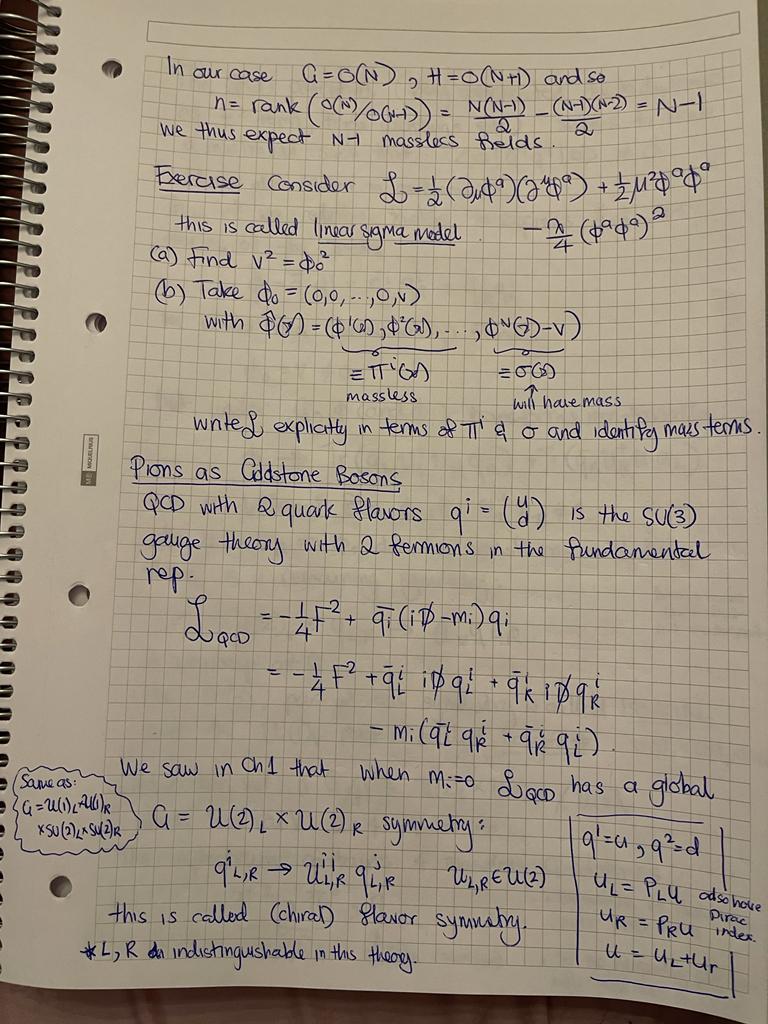 In our case G=O(N), H=O(N+1) and so
n= rank(O(N)/O(N-1)) = N(N-1)/2 - (N-1)(N-2)/2 = N-1
we thus expect N-1 massless fields.
Exercise Consider ℒ=½(∂μφᵃ)(∂^μφᵃ) + ½μ²φᵃφᵃ
this is called linear sigma model. -λ/4 (φᵃφᵃ)²
(a) Find v² = φ₀²
(b) Take φ₀ = (0,0,...,0,v)
with φ̂(x) = (φ¹(x), φ²(x), ..., φᴺ(x)-v)
≡πⁱ(x) ≡σ(x)
massless will have mass
write ℒ explicitly in terms of πⁱ & σ and identify mass terms.
MIQUELRIUS
Pions as Goldstone Bosons
QCD with 2 quark flavors qⁱ = (u d) is the SU(3)
gauge theory with 2 fermions in the fundamental
rep.
ℒ_QCD = -¼F² + q̄ᵢ(iD̸-mᵢ)qᵢ
= -¼F² + q̄ⁱ_L iD̸ qⁱ_L + q̄ⁱ_R iD̸ qⁱ_R
- mᵢ(q̄ⁱ_L qⁱ_R + q̄ⁱ_R qⁱ_L).
We saw in Ch1 that when mᵢ=0 ℒ_QCD has a global
Same as:
G=U(1)_L×U(1)_R
×SU(2)_L×SU(2)_R
G = U(2)_L × U(2)_R symmetry:
qⁱ_L,R → Uⁱʲ_L,R qʲ_L,R U_L,R ∈ U(2)
this is called (chiral) flavor symmetry.
*L, R indistinguishable in this theory.
q¹=u, q²=d
u_L = P_L u also have
u_R = P_R u Dirac index.
u = u_L+u_r